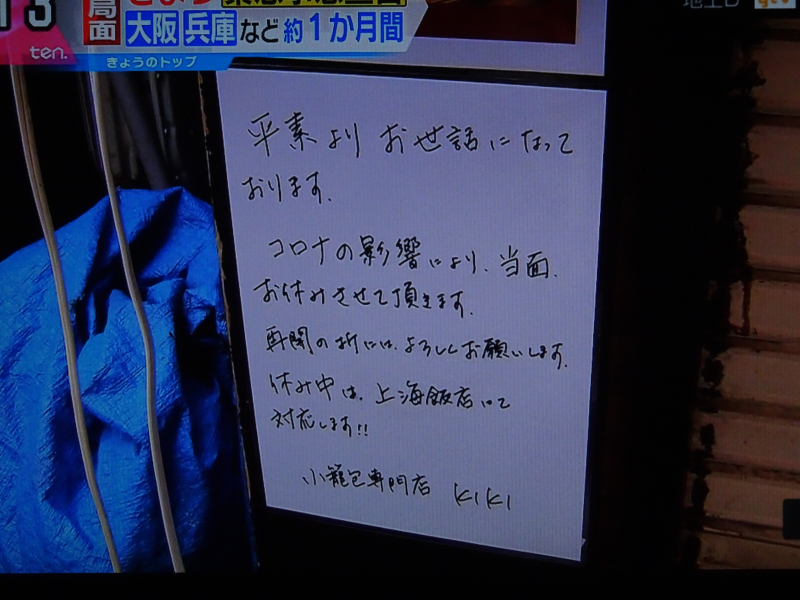 13
局面
大阪 兵庫 など 約1か月間
ten.
きょうのトップ
ytv
平素より お世話になって
おります.
コロナの影響により、当面、
お休みさせて頂きます.
再開の折には、よろしくお願いします.
休み中は、上海飯店にて
対応します!!
小籠包専門店 KiKi